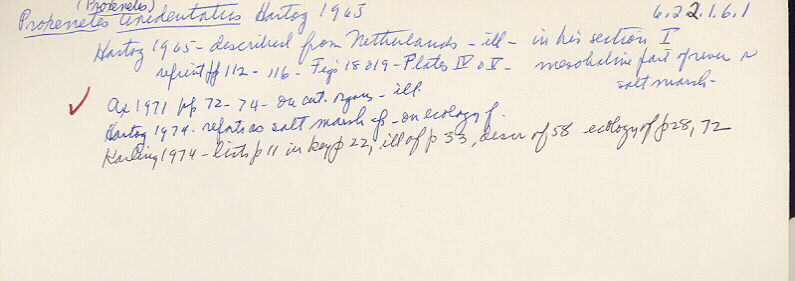 (Proxenetes)
Proxenetes unidentatus Hartog 1965 6.2 2.1.6.1
Hartog 1965 - described from Netherlands - ill - in his section I
reprint pp 112 - 116 - Figs 18 & 19 - Plates IV & V - mesohaline part of river &
salt marsh -
Ax 1971 pp 72 - 74 - on cut. organs - ill.
Hartog 1974 - refers as salt marsh sp - on ecology of.
Karling 1974 - lists p 11 in key p 22, ill of p 33, descr of 58 ecology of p 28, 72